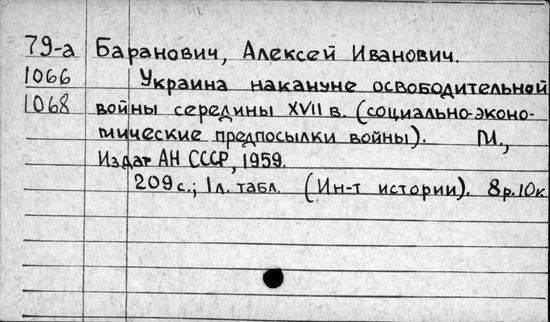 79-а Баранович, Алексей Иванович.
1066 Украина накануне освободительной
1068 войны середины XVII в. (социально-эконо-
мические предпосылки войны). М.,
Издат АН СССР, 1959.
209 с.; 1 л. табл. (Ин-т истории). 8 р. 10 к